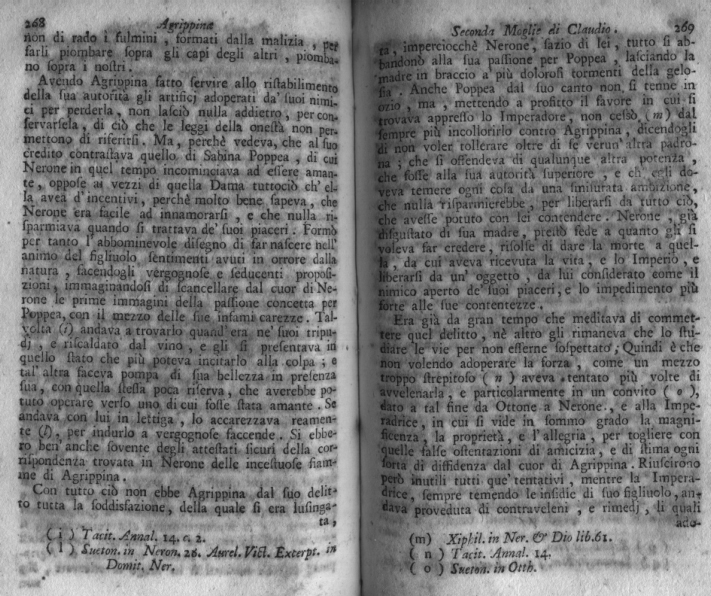 268
Agrippinæ
non di rado i fulmini , formati dalla malizia , per
farli piombare sopra gli capi degli altri , piomba-
no sopra i nostri .
Avendo Agrippina fatto servire allo ristabilimento
della sua autorità gli artificj adoperati da' suoi nimi-
ci per perderla , non lasciò nulla addietro , per con-
servarsela , di ciò che le leggi della onestà non per-
mettono di riferirsi . Ma , perchè vedeva, che al suo
credito contrastava quello di Sabina Poppea , di cui
Nerone in quel tempo incominciava ad essere aman-
te , oppose ai vezzi di quella Dama tuttociò ch' el-
la avea d' incentivi , perchè molto bene sapeva , che
Nerone era facile ad innamorarsi , e che nulla ri-
sparmiava quando si trattava de' suoi piaceri . Formò
per tanto l' abbominevole disegno di far nascere nell'
animo del figliuolo, sentimenti avuti in orrore dalla
natura , facendogli vergognose e seducenti proposi-
zioni , immaginandosi di scancellare dal cuor di Ne-
rone le prime immagini della passione concetta per
Poppea, con il mezzo delle sue infami carezze . Tal-
volta (i) andava a trovarlo quand' era ne' suoi tripu-
dj , e riscaldato dal vino , e gli si presentava in
quello stato che più poteva incitarlo alla colpa ; e
tal' altra faceva pompa di sua bellezza in presenza
sua , con quella stessa poca riserva , che averebbe po-
tuto operare verso uno di cui fosse stata amante . Se
andava con lui in lettiga , lo accarezzava reamen-
te (l), per indurlo a vergognose faccende . Si ebbe-
ro ben' anche sovente degli attestati sicuri della cor-
rispondenza trovata in Nerone delle incestuose fiam-
me di Agrippina .
Con tutto ciò non ebbe Agrippina dal suo delit-
to tutta la soddisfazione , della quale si era lusinga-
ta ,
( i ) Tacit. Annal. 14. c. 2.
( l ) Sueton. in Neron. 26. Aurel. Vict. Excerpt. in
Domit. Ner.
Seconda Moglie di Claudio .
269
ta , imperciocchè Nerone , sazio di lei , tutto si ab-
bandonò alla sua passione per Poppea , lasciando la
madre in braccio a' più dolorosi tormenti della gelo-
sia . Anche Poppea dal suo canto non si tenne in
ozio , ma , mettendo a profitto il favore in cui si
trovava appresso lo Imperadore, non cessò (m) dal
sempre più incollorirlo contro Agrippina , dicendogli
di non voler tollerare oltre di se verun' altra padro-
na ; che si offendeva di qualunque altra potenza ,
che fosse alla sua autorità superiore , e ch' egli do-
veva temere ogni cosa da una smisurata ambizione,
che nulla risparmierebbe , per liberarsi da tutto ciò,
che avesse potuto con lei contendere . Nerone , già
disgustato di sua madre , prestò fede a quanto gli si
voleva far credere, risolse di dare la morte a quel-
la , da cui aveva ricevuta la vita , e lo Imperio , e
liberarsi da un' oggetto , da lui considerato come il
nimico aperto de' suoi piaceri , e lo impedimento più
forte alle sue contentezze .
Era già da gran tempo che meditava di commet-
tere quel delitto , nè altro gli rimaneva che lo stu-
diare le vie per non esserne sospettato ; Quindi è che
non volendo adoperare la forza , come un mezzo
troppo strepitoso ( n ) aveva tentato più volte di
avvelenarla , e particolarmente in un convito ( o ),
dato a tal fine da Ottone a Nerone , e alla Impe-
radrice , in cui si vide in sommo grado la magni-
ficenza , la proprietà , e l' allegria , per togliere con
quelle false ostentazioni di amicizia , e di stima ogni
sorta di diffidenza dal cuor di Agrippina . Riuscirono
però inutili tutti que' tentativi , mentre la Impera-
drice , sempre temendo le insidie di suo figliuolo , an-
dava proveduta di contraveleni , e rimedj , li quali
ado-
(m) Xiphil. in Ner. & Dio lib.61.
( n ) Tacit. Annal. 14.
( o ) Sueton. in Otth.